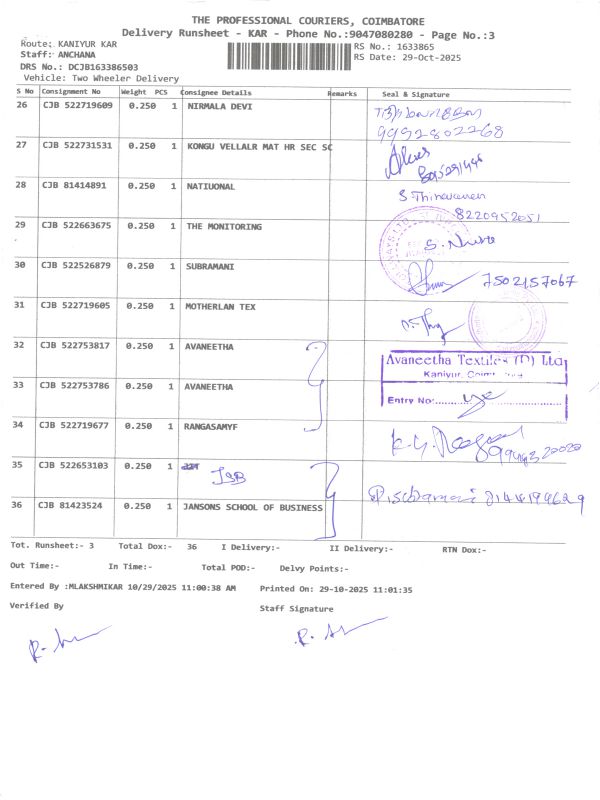 THE PROFESSIONAL COURIERS, COIMBATORE
Delivery Runsheet - KAR - Phone No.:9047080280 - Page No.:3
Route: KANIYUR KAR
RS No.: 1633865
Staff: ANCHANA
RS Date: 29-Oct-2025
DRS No.: DCJB163386503
Vehicle: Two Wheeler Delivery
S No Consignment No Weight PCS Consignee Details Remarks Seal & Signature
26 CJB 522719609 0.250 1 NIRMALA DEVI
9992802268
27 CJB 522731531 0.250 1 KONGU VELLALR MAT HR SEC SC
28 CJB 81414891 0.250 1 NATIUONAL
8220952051
29 CJB 522663675 0.250 1 THE MONITORING
30 CJB 522526879 0.250 1 SUBRAMANI 7502157067
31 CJB 522719605 0.250 1 MOTHERLAN TEX
32 CJB 522753817 0.250 1 AVANEETHA
Avaneetha Textiles (P) Ltd
Kaniyur,
33 CJB 522753786 0.250 1 AVANEETHA
Entry No:
34 CJB 522719677 0.250 1 RANGASAMYF
35 CJB 522653103 0.250 1 JSB
36 CJB 81423524 0.250 1 JANSONS SCHOOL OF BUSINESS
Tot. Runsheet:- 3 Total Dox:- 36 I Delivery:- II Delivery:- RTN Dox:-
Out Time:- In Time:- Total POD:- Delvy Points:-
Entered By :MLAKSHMIKAR 10/29/2025 11:00:38 AM Printed On: 29-10-2025 11:01:35
Verified By Staff Signature